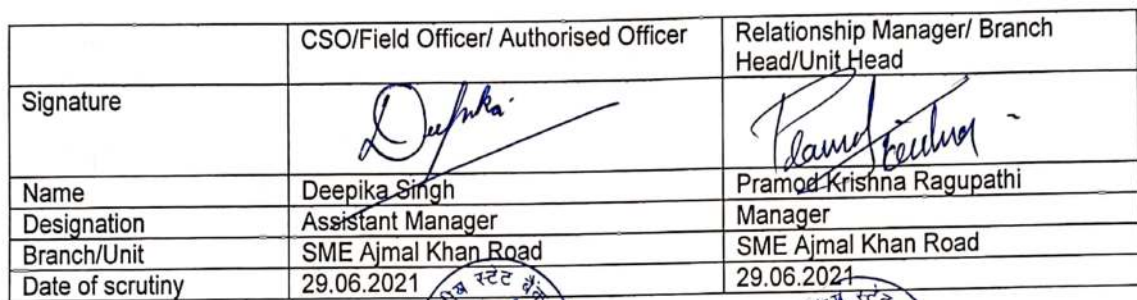 CSO/Field Officer/ Authorised Officer
Relationship Manager/ Branch
Head/Unit Head
Signature
Deepika
Pramod Krishna
Name
Deepika Singh
Pramod Krishna Ragupathi
Designation
Assistant Manager
Manager
Branch/Unit
SME Ajmal Khan Road
SME Ajmal Khan Road
Date of scrutiny
29.06.2021
29.06.2021
स्टेट बैंक
स्टेट